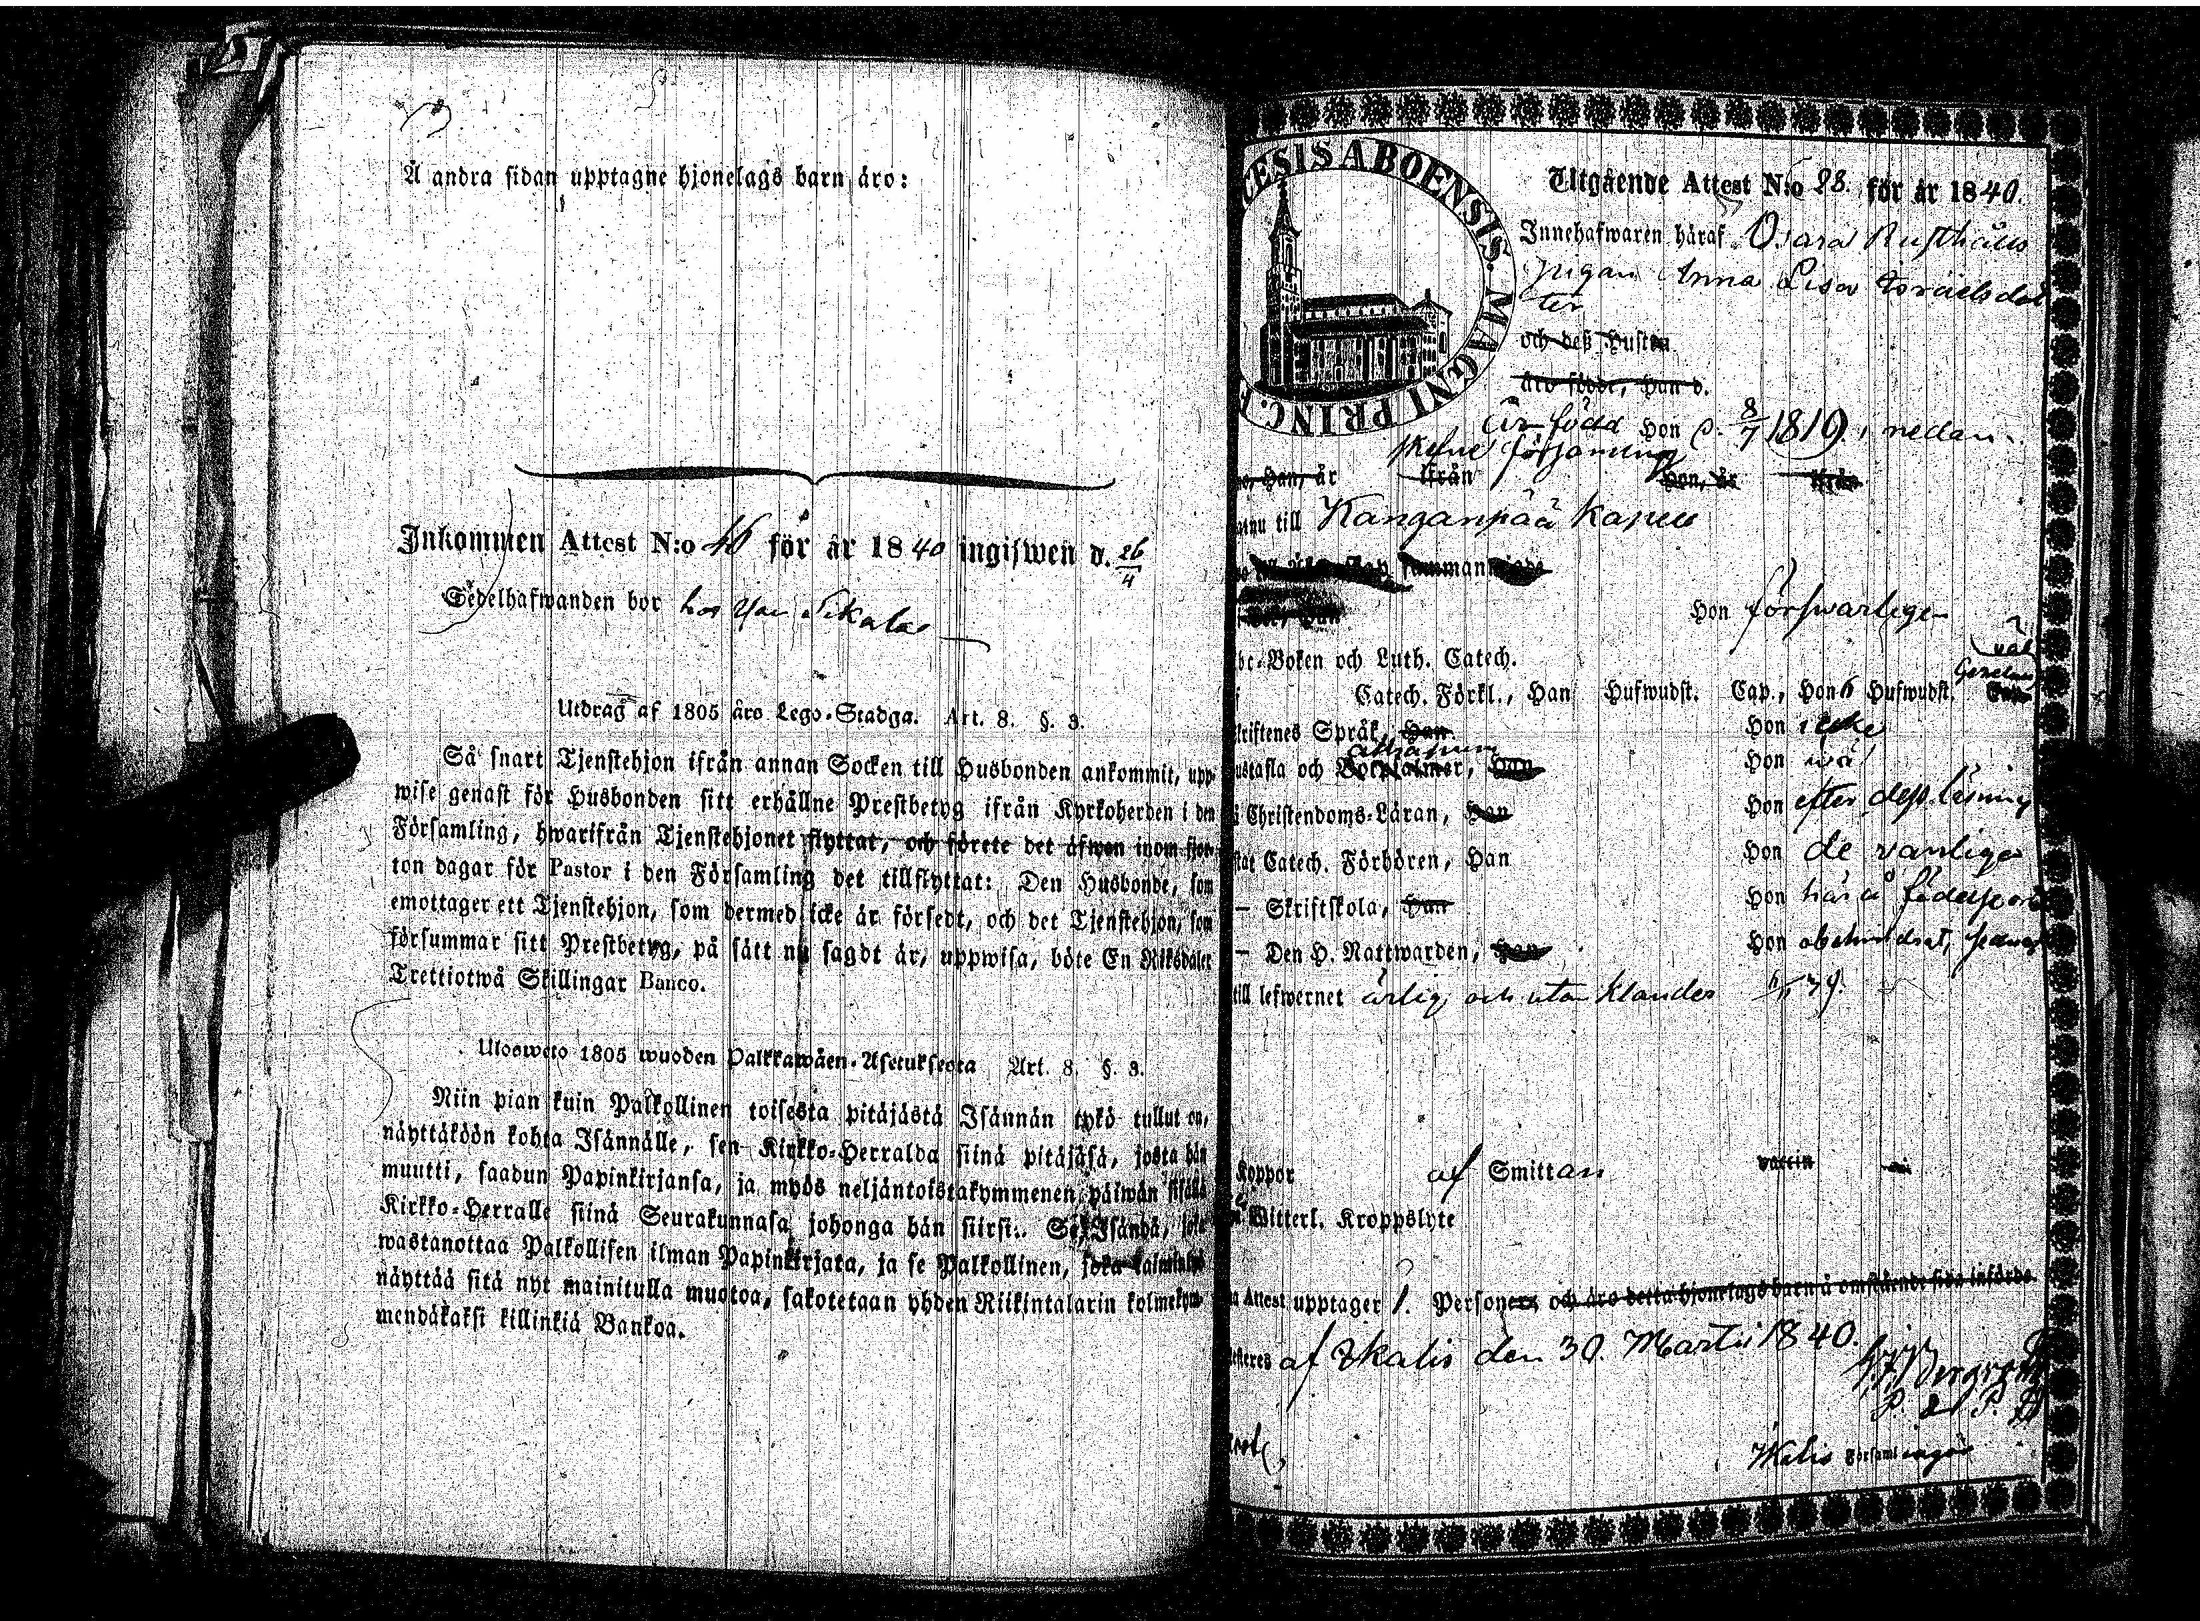 Å andra sidan upptagne hjonelags barn äro:
Inkommen Attest N:o 46 för år 1840 ingifwen d. 26/4
Sedelhafwanden bor hos
Utdrag af 1805 års Lego-Stadga. Art. 8. §. 3.
Så snart Tjenstehjon ifrån annan Socken till Husbonden ankommit, upp-
wise genast för Husbonden sitt erhållne Prestbetyg ifrån Kyrkoherden i den
Församling, hwarifrån Tjenstehjonet flyttat, och förete det äfwen inom fjor-
ton dagar för Pastor i den Församling det tillflyttat: Den Husbonde, som
emottager ett Tjenstehjon, som dermed icke är försedt, och det Tjenstehjon, som
försummar sitt Prestbetyg, på sätt nu sagdt är, uppwisa, böte En Riksdaler
Trettiotwå Skillingar Banco.
Ulosweto 1805 wuoden Palkkawäen-Asetuksesta Art. 8. §. 3.
Niin pian kuin Palkollinen toisesta pitäjästä Isännän tykö tullut on,
näyttäköön kohta Isännälle, sen Kirkko-Herralda siinä pitäjäsä, josta hän
muutti, saadun Papinkirjansa, ja myös neljäntoistakymmenen päiwän sisällä
Kirkko-Herralle siinä Seurakunnasa johonga hän siirsi. Se Isändä, joka
wastanottaa Palkollisen ilman Papinkirjata, ja se Palkollinen, joka laiminlyö
näyttää sitä nyt mainitulla muotoa, sakotetaan yhden Riikintalarin kolmekym-
mendäkaksi killinkiä Bankoa.
CESIS ABOENSIS. MAGNI PRINC. F
Utgående Attest N:o 28. för år 1840.
Innehafwaren häraf Osara Rusthålls
pigan Anna Lisa Israelsdot
ter
och deß Hustru
äro födde, Han d.
är född Hon d. 8/7 1819 i nedan
församling
Han, är ifrån Hon, är ifrån
till Kanganpää Kapell
Hon förswarlige
Boken och Luth. Catech.
Catech. Förkl., Han Hufwudst. Cap., Hon 6 Hufwudst.
Skriftenes Språk, Han Hon icke
Hustafla och Botpsalmer, Han Hon wäl
Christendoms-Läran, Han Hon efter dess läsning
Catech. Förhören, Han Hon de vanlige
– Skriftskola, Han Hon här å födelseort
– Den H. Nattwarden, Han Hon obehindrat,
till lefwernet ärlig och utan klander
Koppor af Smittan
Witterl. Kroppslyte
Attest upptager 1. Personer, och äro detta hjonelags barn å omstående sida införde.
af Ikalis den 30. Martii 1840.
Ikalis Församlingar